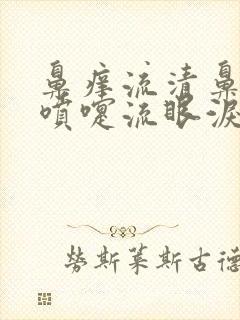 鼻痒流清鼻
喷嚏流眼泪
劳斯莱斯古德